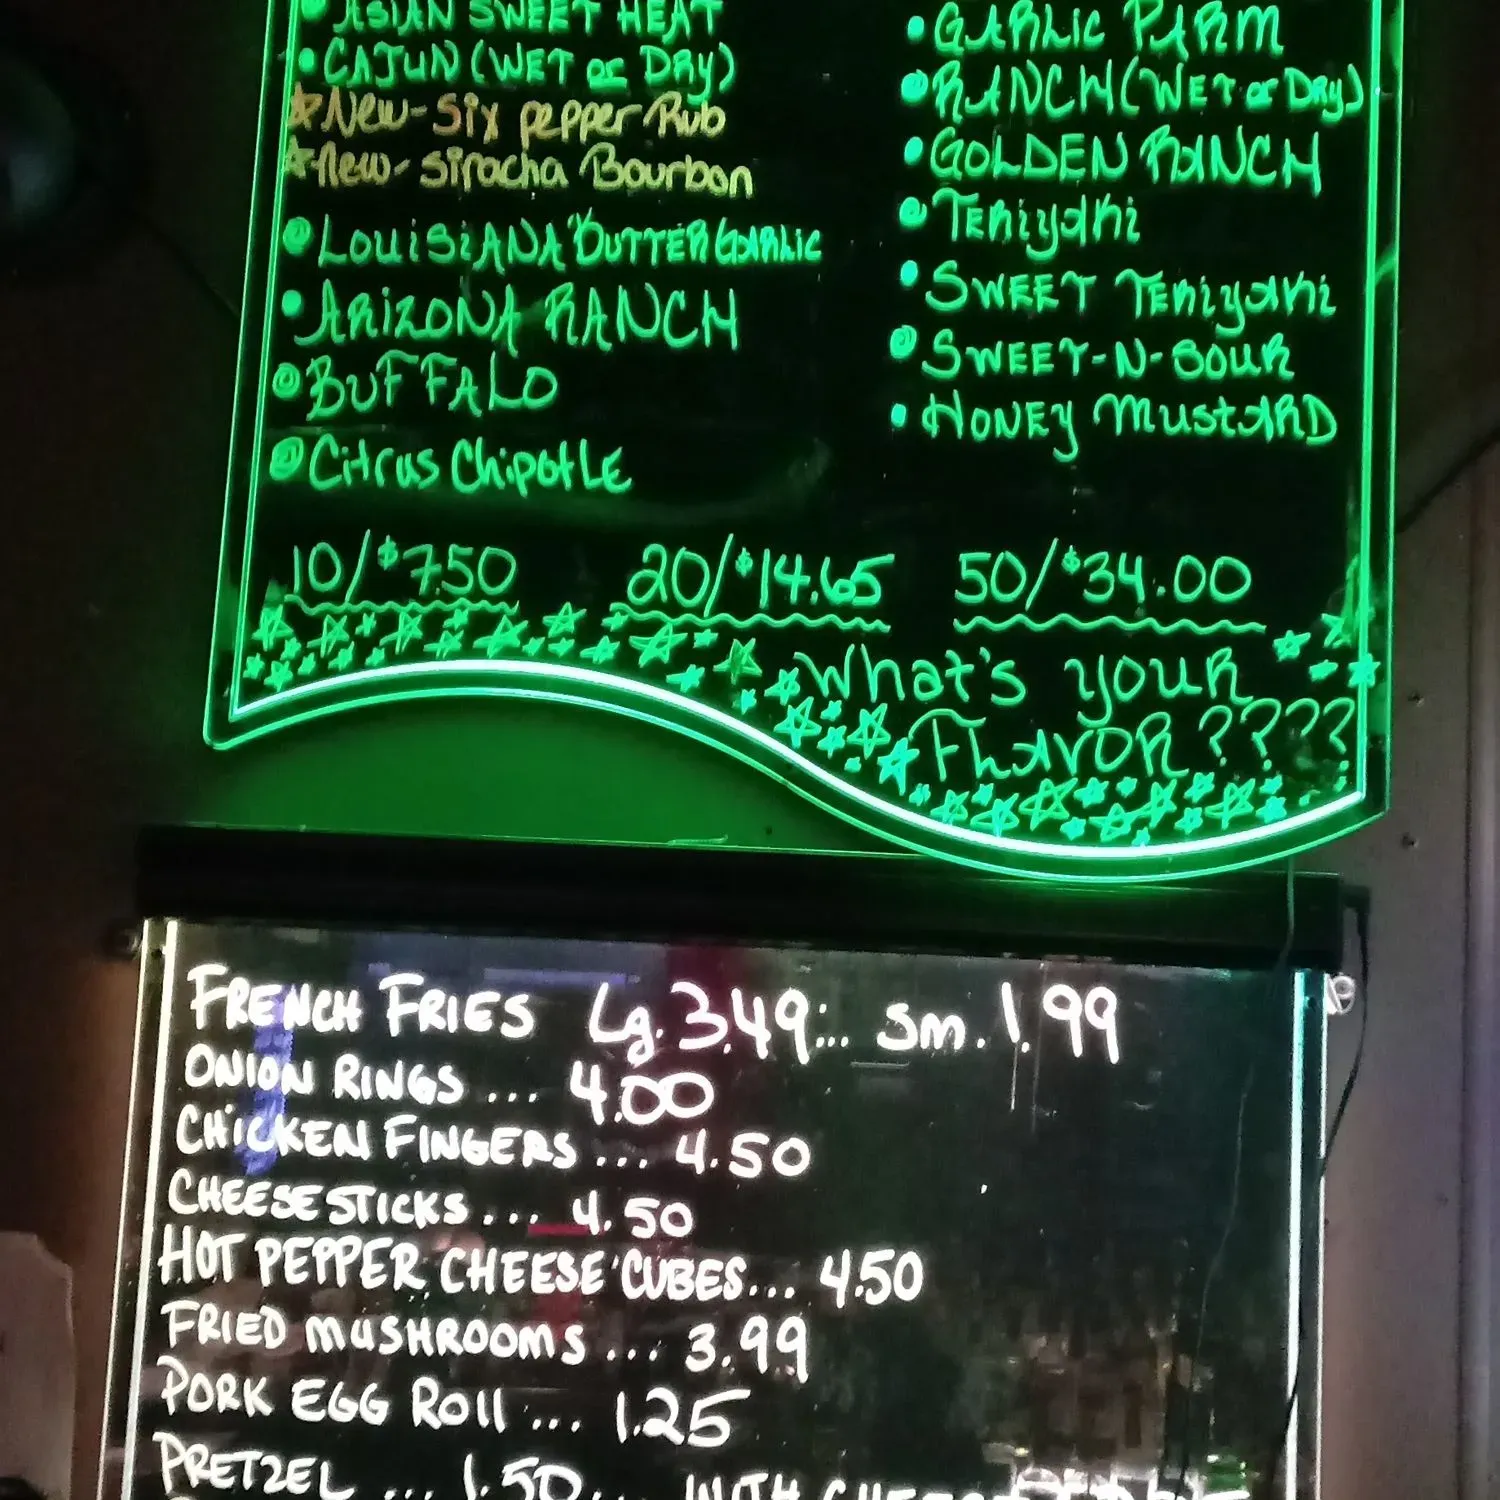 ASIAN SWEET HEAT
CAJUN (WET or DRY)
New-Six pepper Rub
New-Siracha Bourbon
LOUiSiANA BUTTER GARLiC
ARiZONA RANCH
BUFFALO
Citrus ChipotLE
GARLiC PARM
RANCH (WET or DRY)
GOLDEN RANCH
TERiyaki
SWEET TERiyaki
SWEET-N-SOUR
HONEY MUSTARD
10/$7.50 20/$14.65 50/$34.00
What's your
FLAVOR????
FRENCH FRIES Lg. 3.49... sm. 1.99
ONION RINGS ... 4.00
CHiCKEN FINGERS ... 4.50
CHEESE STICKS ... 4.50
HOT PEPPER CHEESE CUBES... 4.50
FRIED MUSHROOMS ... 3.99
PORK EGG Roll ... 1.25
PRETZEL ... 1.50... WITH CHEESE